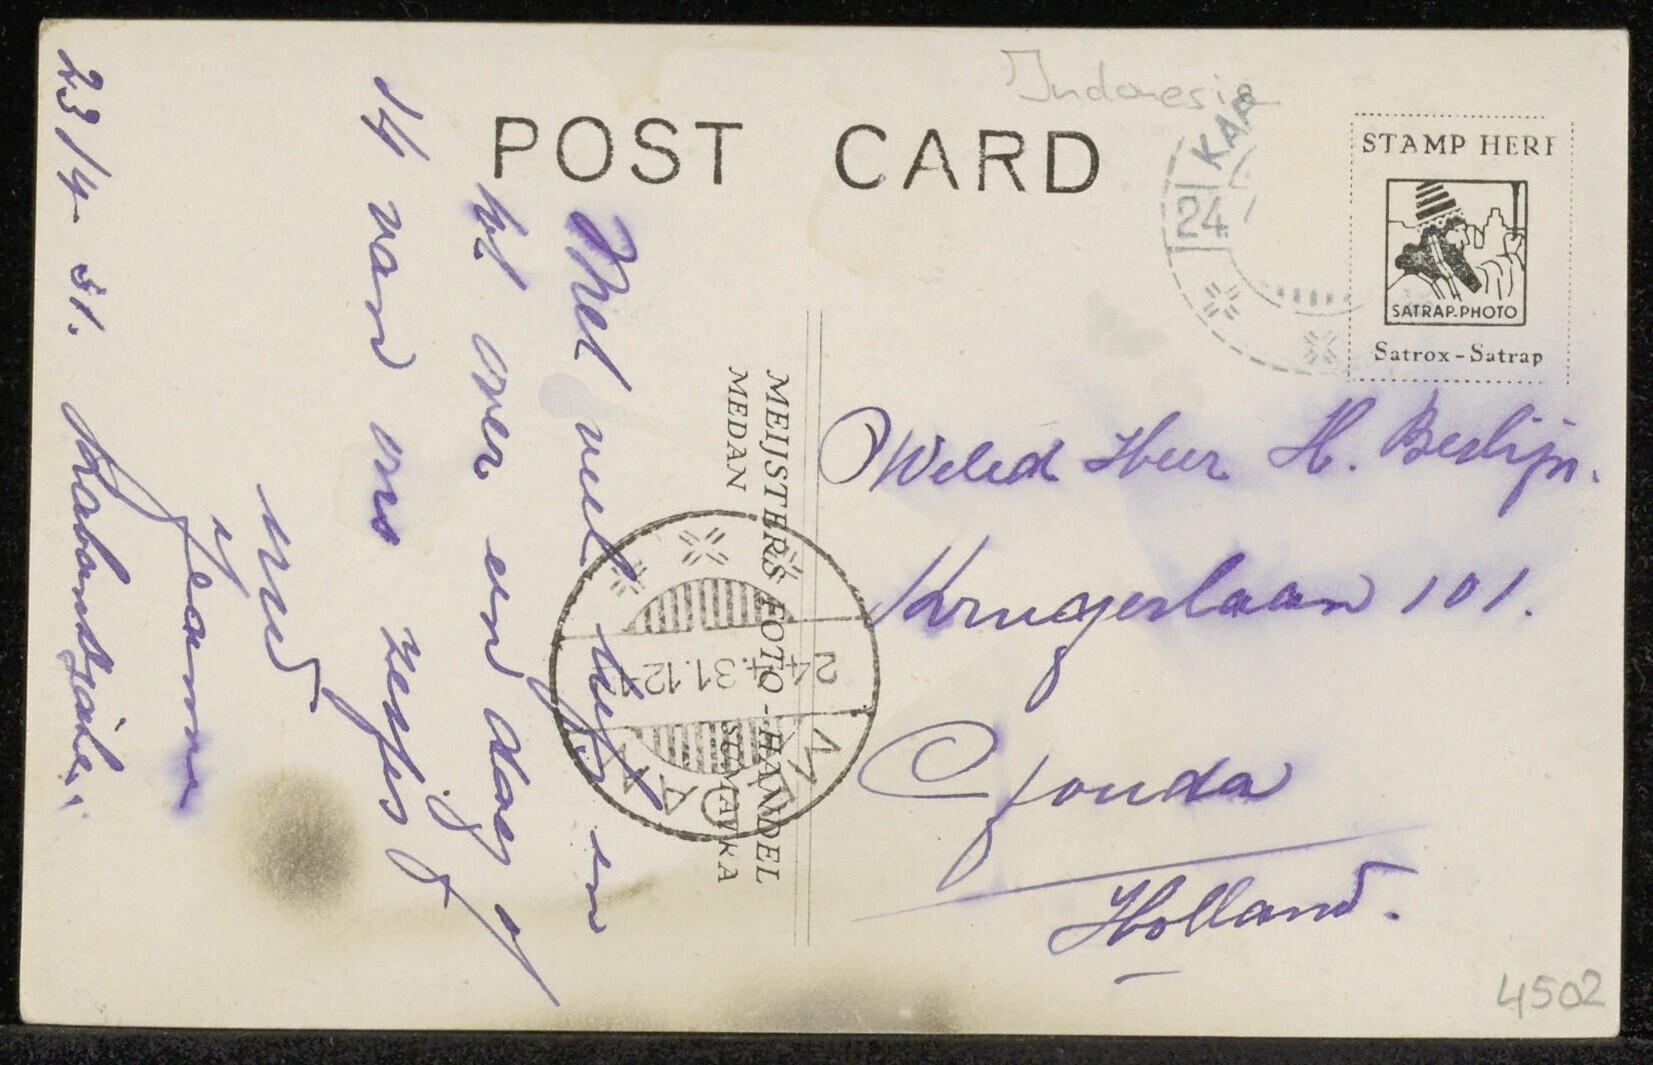 Indonesia
POST CARD
STAMP HERE
SATRAP-PHOTO
Satrox-Satrap
KAR
24
MEIJSTER'S FOTO-HANDEL
MEDAN SUMATRA
MEDAN
24.4.31.12-1
Met veel liefs en
tot over een dag of
14 van ons zelfs
Jeanne
23/4-31. Kabandjahe.
WelEd Heer H. Beslijn.
Krugerlaan 101.
Gouda
Holland.
4502